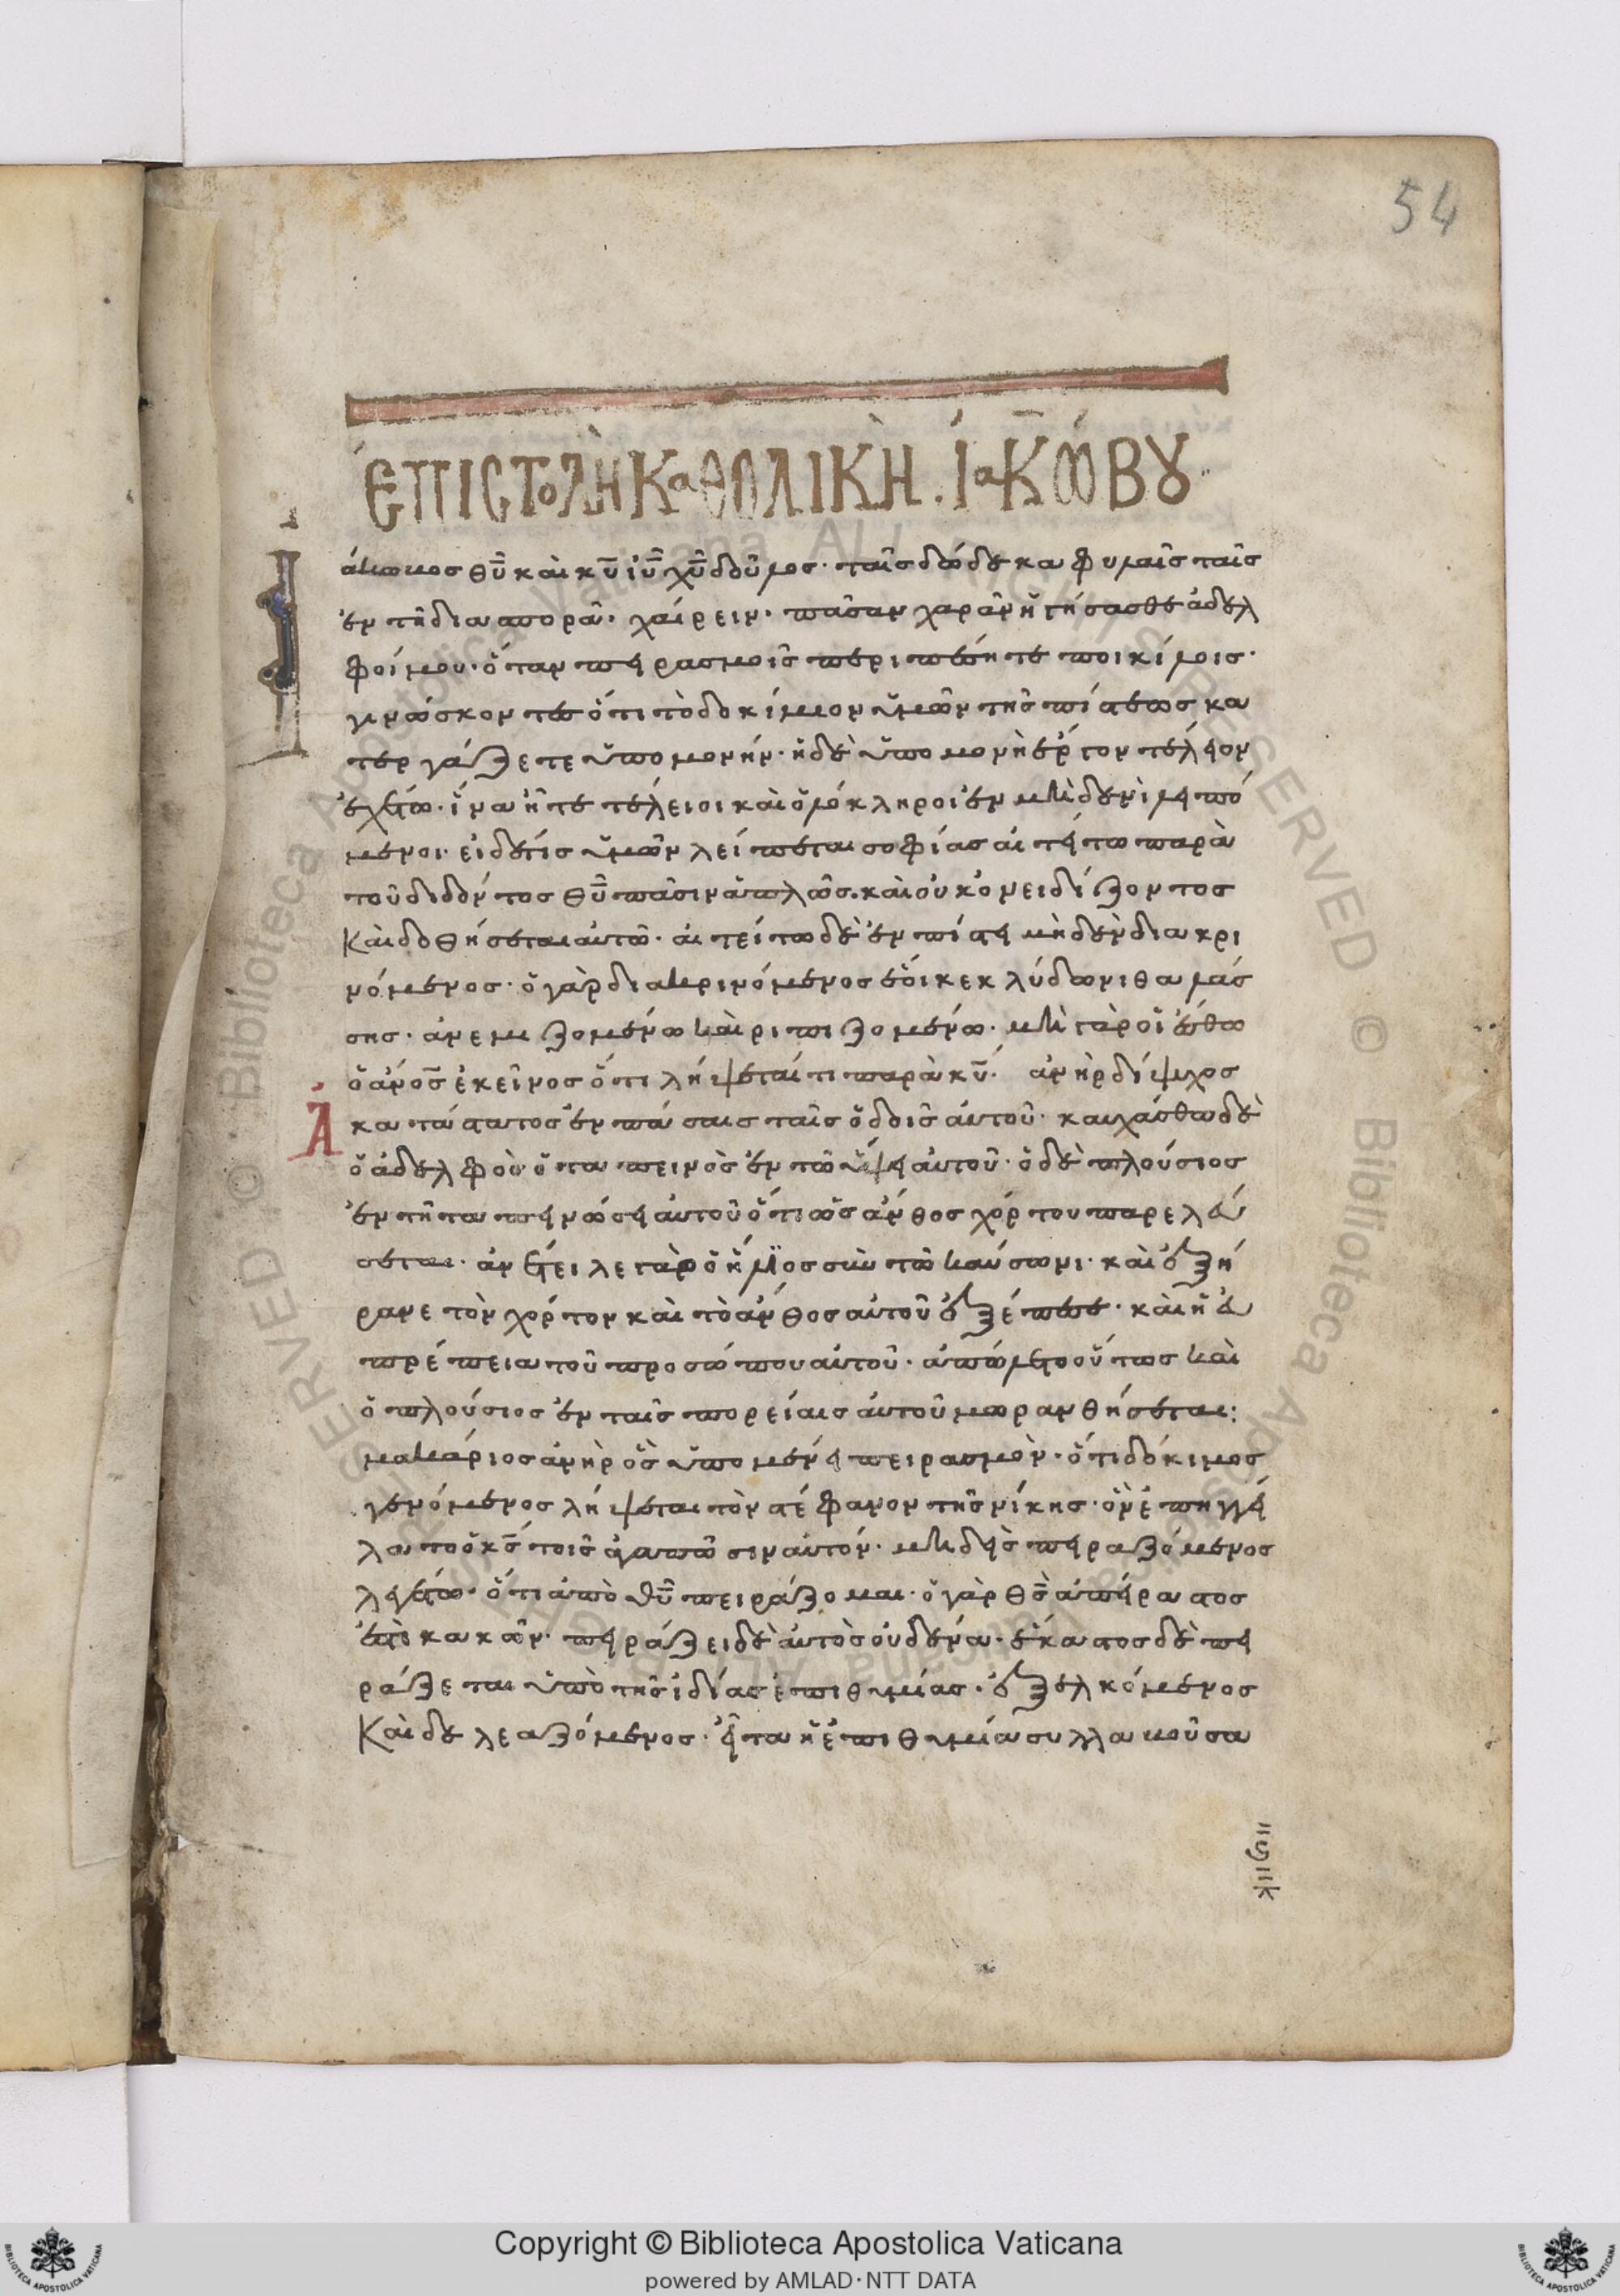 54
ἐπιστολὴ καθολικὴ. ἰακώβου
Ἰάκωβος θῦ καὶ κῦ ἰῦ χῦ δοῦλος· ταῖς δώδεκα φυλαῖς ταῖς
ἐν τῆ διασπορᾶ· χαίρειν· πᾶσαν χαρὰν ἡγήσασθε ἀδελ
φοί μου· ὅταν πειρασμοῖς περιπέσητε ποικίλοις·
γινώσκοντες ὅτι τὸ δοκίμιον ὑμῶν τῆς πίστεως κα
τεργάζετε ὑπομονήν· ἡ δὲ ὑπομονὴ ἔργον τέλειον
ἐχέτω· ἵνα ἦτε τέλειοι καὶ ὁλόκληροι ἐν μηδενὶ λειπό
μενοι· εἰ δέ τις ὑμῶν λείπεται σοφίας αἰτείτω παρὰ
τοῦ διδόντος θῦ πᾶσιν ἁπλῶς. καὶ οὐκ ὀνειδίζοντος
Καὶ δοθήσεται αὐτῶ· αἰτείτω δὲ ἐν πίστει μὴδὲν διακρι
νόμενος· ὁ γὰρ διακρινόμενος ἔοικεκλύδωνι θαλάς
σης· ἀνεμιζομένω καὶ ριπιζομένω· μὴ γὰρ οἰέσθω
ὁ ἄνος ἐκεῖνος ὅτι λήψεταί τι παρὰ κῦ· ἀνὴρ δίψυχος
ἀκατάστατος ἐν πάσαις ταῖς ὁδοῖς αὐτοῦ· καυχάσθω δὲ
ὁ ἀδελφὸς ὁ ταπεινὸς ἐν τῶ ὕψει αὐτοῦ· ὁ δὲ πλούσιος
ἐν τῆ ταπεινώσει αὐτοῦ ὅτι ὡς ἄνθος χόρτου παρελεύ
σεται· ἀνέτειλε γὰρ ὁ ἥλιος σὺν τῶ καύσωνι· καὶ ἐξή
ρανε τὸν χόρτον καὶ τὸ ἄνθος αὐτοῦ ἐξέπεσε· καὶ ἡ εὐ
πρέπεια τοῦ προσώπου αὐτοῦ· ἀπώλετο οὕτως καὶ
ὁ πλούσιος ἐν ταῖς πορείαις αὐτοῦ μαρανθήσεται:
μακάριος ἀνὴρ ὃς ὑπομένει πειρασμὸν· ὅτι δόκιμος
γενόμενος λήψεται τὸν στέφανον τῆς νίκης· ὃν ἐπηγγεί
λατο ὁ κς τοῖς ἀγαπῶσιν αὐτόν· μηδεὶς πειραζόμενος
λεγέτω· ὅτι ἀπὸ θῦ πειράζομαι· ὁ γὰρ θς ἀπείραστος
ἐστὶ κακῶν· πειράζει δὲ αὐτὸς οὐδένα· ἕκαστος δὲ πει
ράζεται ὑπὸ τῆς ἰδίας ἐπιθυμίας· ἐξελκόμενος
Καὶ δελεαζόμενος· εἶτα ἡ ἐπιθυμία συλλαβοῦσα
Copyright © Biblioteca Apostolica Vaticana
powered by AMLAD·NTT DATA